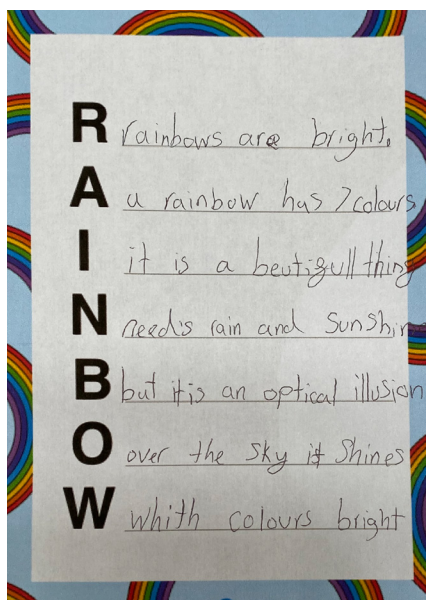 R rainbows are bright.
A a rainbow has 7 colours
I it is a beutigull thing
N need's rain and Sunshine
B but it is an optical illusion
O over the sky it Shines
W whith colours bright